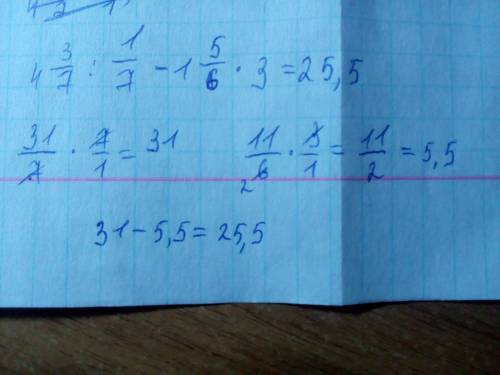 4 3/7 : 1/7 - 1 5/6 · 3 = 25,5
31/7 · 7/1 = 31 11/6 · 3/1 = 11/2 = 5,5
2
31 - 5,5 = 25,5